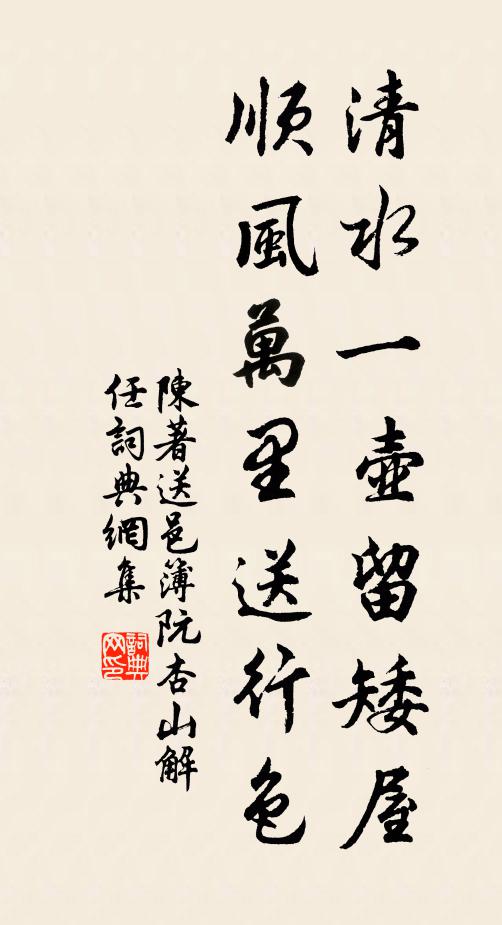 清水一壺留矮屋
順風萬里送行色
陳著送邑簿阮杏山解
任詞典網集
詞典
网印